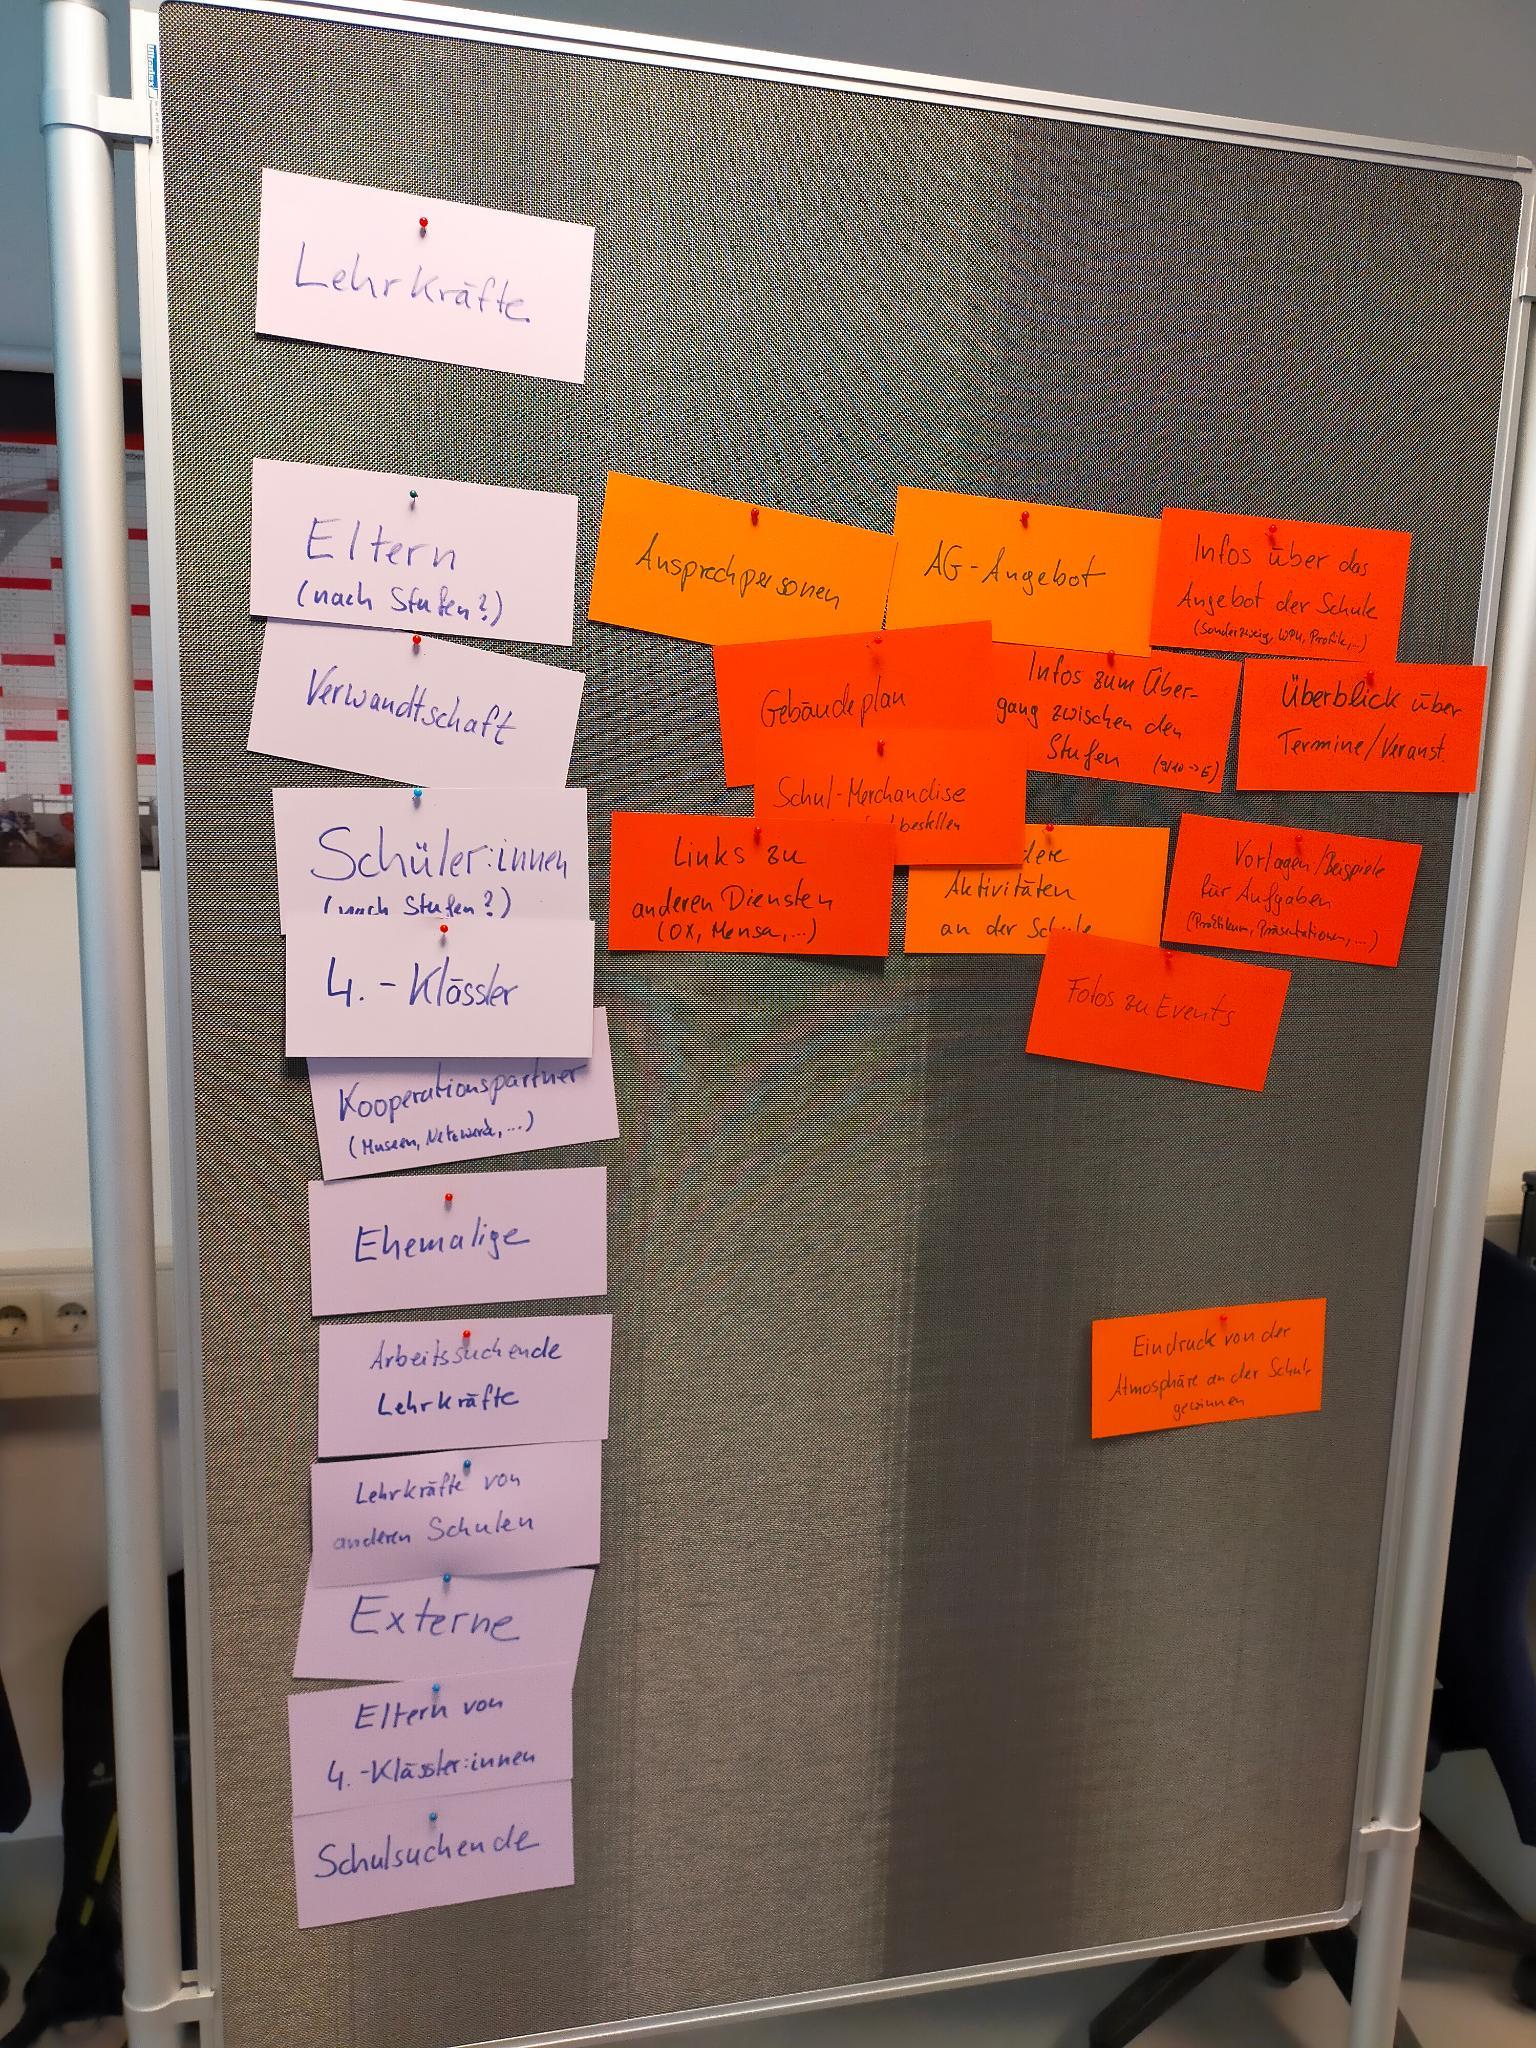 Lehrkräfte
Eltern
(nach Stufen?)
Verwandtschaft
Schüler:innen
(nach Stufen?)
4.-Klässler
Kooperationspartner
(Museen, Netzwerk, ...)
Ehemalige
Arbeitssuchende
Lehrkräfte
Lehrkräfte von
anderen Schulen
Externe
Eltern von
4.-Klässler:innen
Schulsuchende
Ansprechpersonen
AG-Angebot
Infos über das
Angebot der Schule
(Sonderzweig, WPU, Profile, ...)
Gebäudeplan
Infos zum Über-
gang zwischen den
Stufen (9/10->E)
Überblick über
Termine/Veranst.
Schul-Merchandise
bestellen
Links zu
anderen Diensten
(OX, Mensa, ...)
dere
Aktivitäten
an der Schule
Vorlagen/Beispiele
für Aufgaben
(Praktikum, Präsentationen, ...)
Fotos zu Events
Eindruck von der
Atmosphäre an der Schule
gewinnen
September